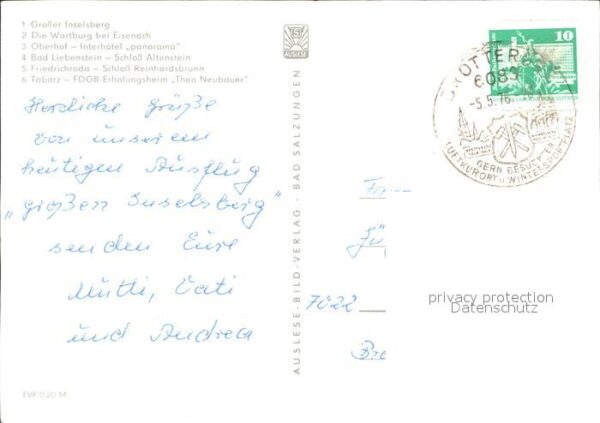 1 Großer Inselsberg
2 Die Wartburg bei Eisenach
3 Oberhof – Interhotel „panorama"
4 Bad Liebenstein – Schloß Altenstein
5 Friedrichroda – Schloß Reinhardsbrunn
6 Tabarz – FDGB-Erholungsheim „Theo Neubauer"
Herzliche Grüße
von unserem
heutigen Ausflug
„großen Inselsberg"
senden Eure
Mutti, Vati
und Andrea
EVP 0,20 M
AUSLESE-BILD-VERLAG · BAD SALZUNGEN
AUSLESE
10
BROTTERODE
6085
-5.5.76
GERN BESUCHTER
LUFTKURORT U. WINTERSPORTPLATZ
Fa
Jü
7022
privacy protection
Datenschutz